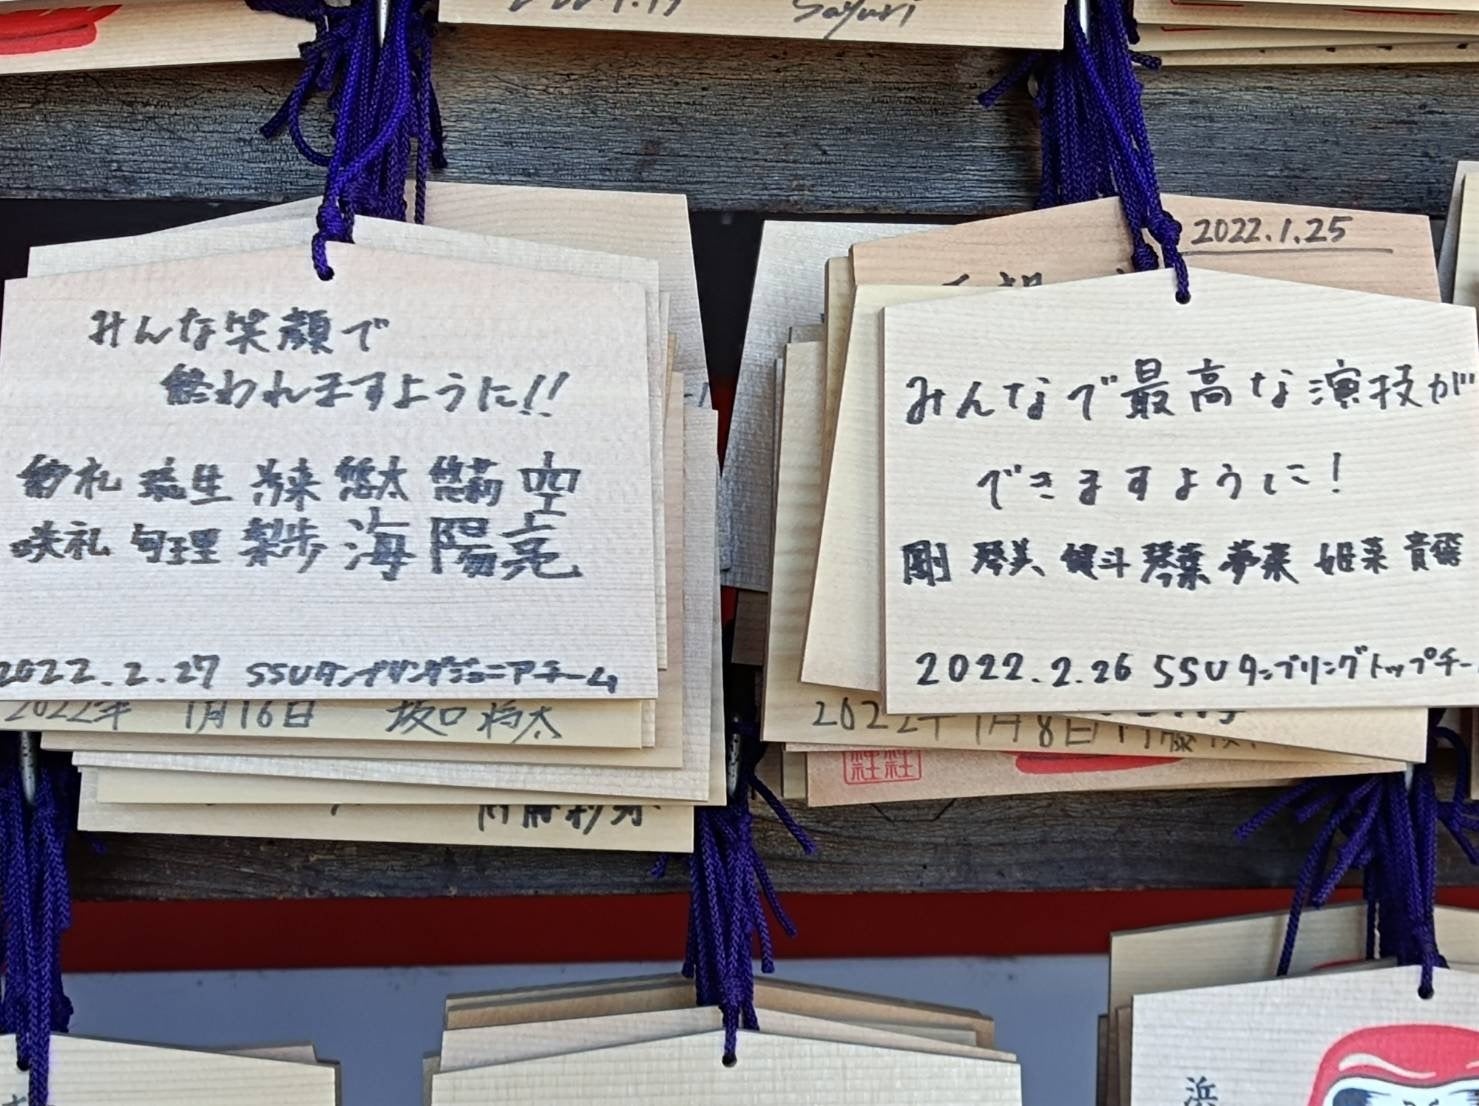 Sayuri
みんな笑顔で
終われますように!!
悠太 空
海 陽亮
2022.2.27 SSUタンブリングジュニアチーム
2022年 1月16日 坂口 将太
2022.1.25
みんなで最高な演技が
できますように!
剛 琴美 健斗 琴葉 夢来 姫菜
2022.2.26 SSUタンブリングトップチー
2022年1月8日
浜